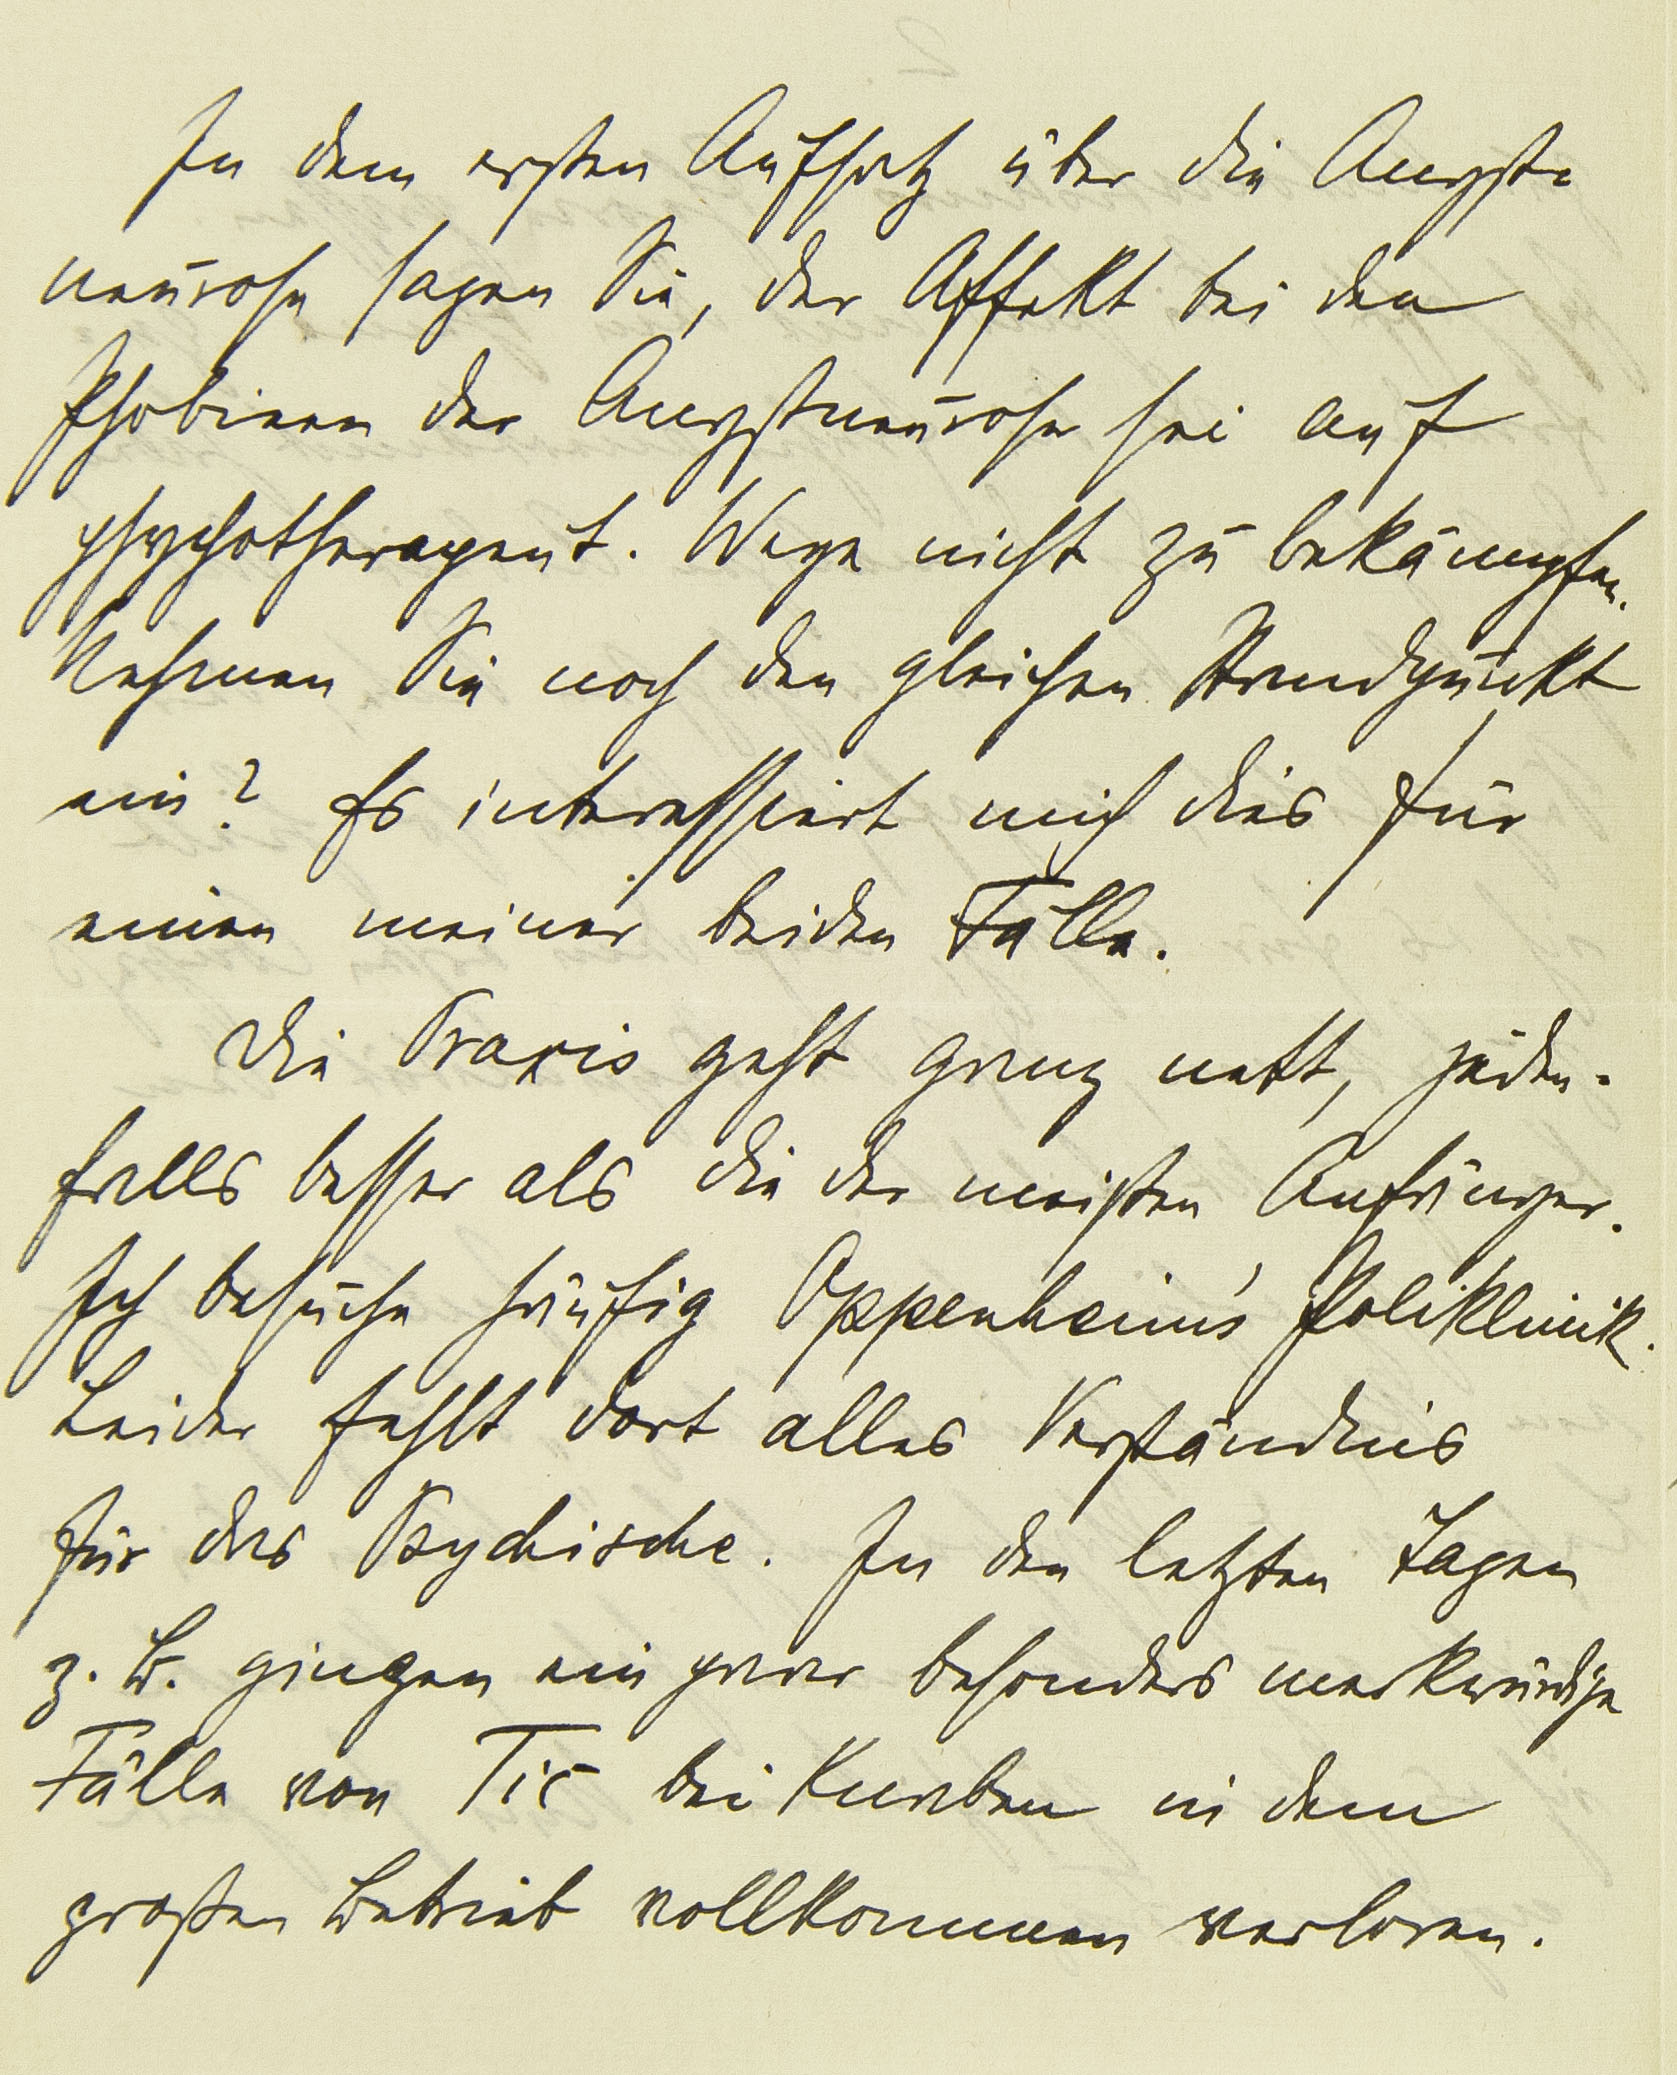 In dem ersten Aufsatz über die Angst-
neurose sagen Sie, der Affekt bei den
Phobieen der Angstneurose sei auf
psychotherapeut. Wege nicht zu bekämpfen.
Nehmen Sie noch den gleichen Standpunkt
ein? Es interessiert mich dies für
einen meiner beiden Fälle.
Die Praxis geht ganz nett, jeden-
falls besser als die der meisten Anfänger.
Ich besuche häufig Oppenheim's Poliklinik.
Leider fehlt dort alles Verständnis
für das Psychische. In den letzten Tagen
z. B. gingen ein paar besonders merkwürdige
Fälle von Tic bei Knaben in dem
großen Betrieb vollkommen verloren.